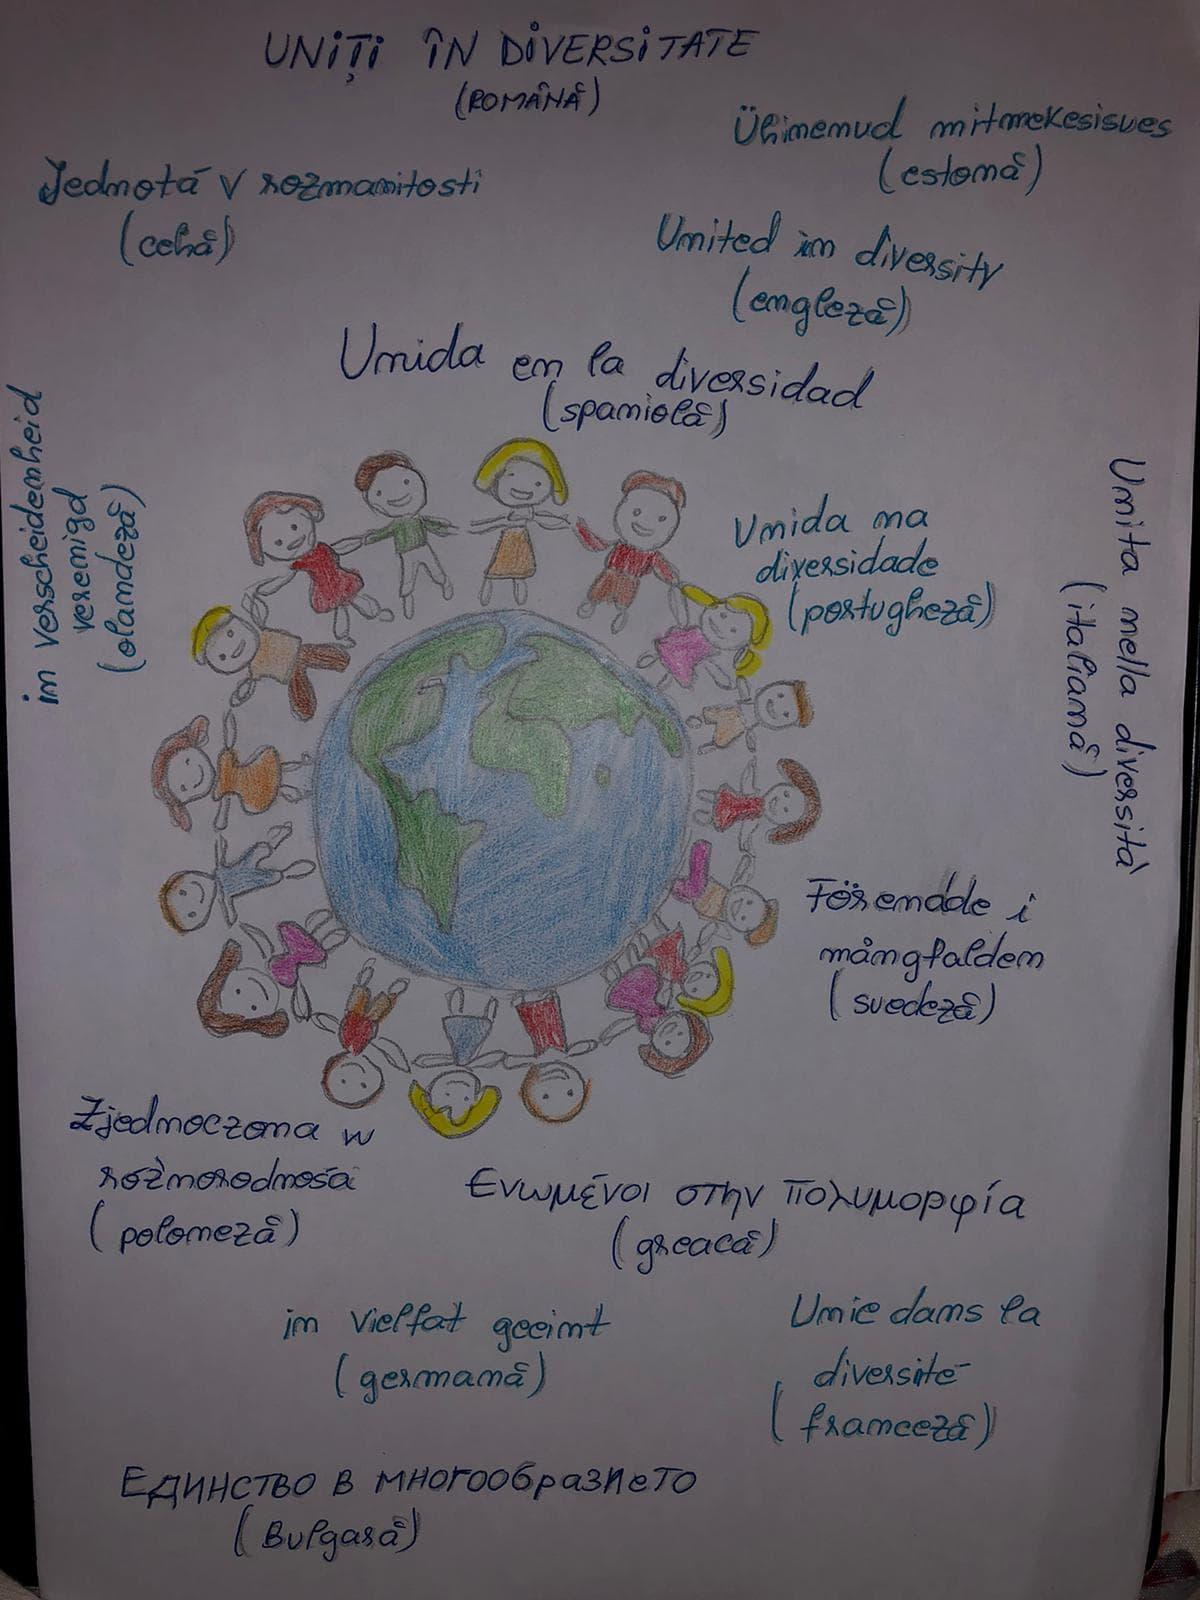 UNIȚI ÎN DIVERSITATE
(ROMÂNĂ)
Ühinenud mitmekesisues
(estonă)
Jednotá v rozmanitosti
(cehă)
United in diversity
(engleză)
Unida en la diversidad
(spaniolă)
in verscheidenheid
verenigd
(olandeză)
Unida na
diversidade
(portugheză)
Unita nella diversità
(italiană)
Förenade i
mångfalden
(suedeză)
Zjednoczona w
róžnorodnośa
(poloneză)
Ενωμένοι στην πολυμορφία
(greacă)
in vielfat geeint
(germană)
Unie dans la
diversité
(franceză)
Единство в многообразието
(Bulgară)